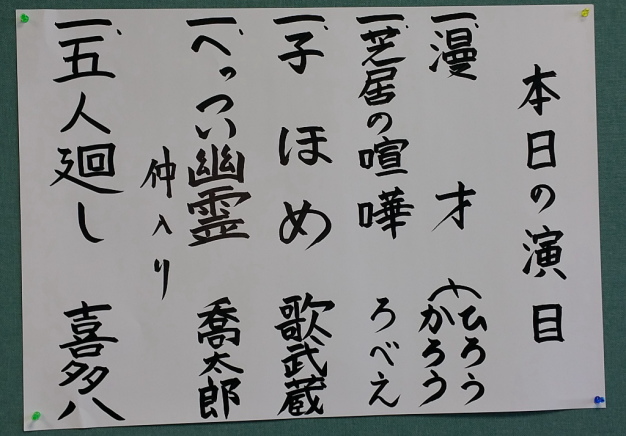 本日の演目
一、漫才 (ひろう かろう
一、芝居の喧嘩 ろべえ
一、子ほめ 歌武蔵
一、べっつい幽霊 喬太郎
仲入り
一、五人廻し 喜多八